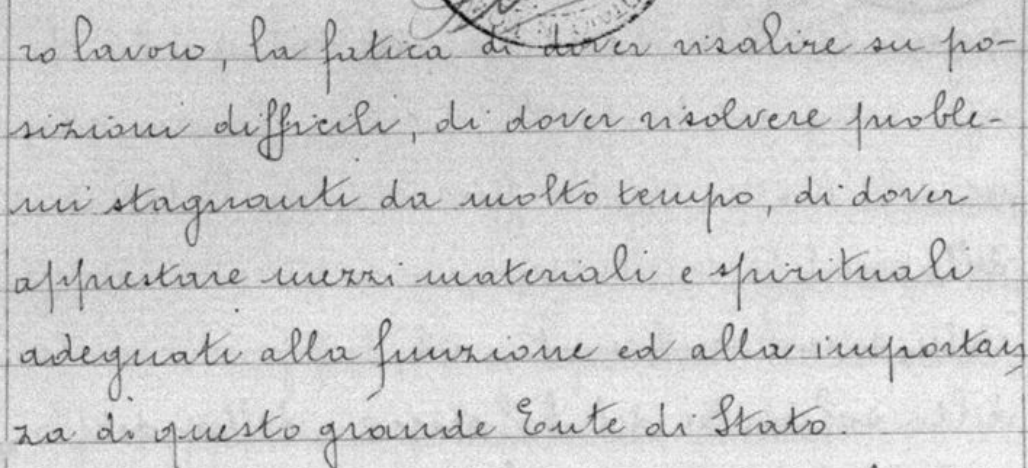 ro lavoro, la fatica di dover risalire su po-
sizioni difficili, di dover risolvere proble-
mi stagnanti da molto tempo, di dover
apprestare mezzi materiali e spirituali
adeguati alla funzione ed alla importan
za di questo grande Ente di Stato.